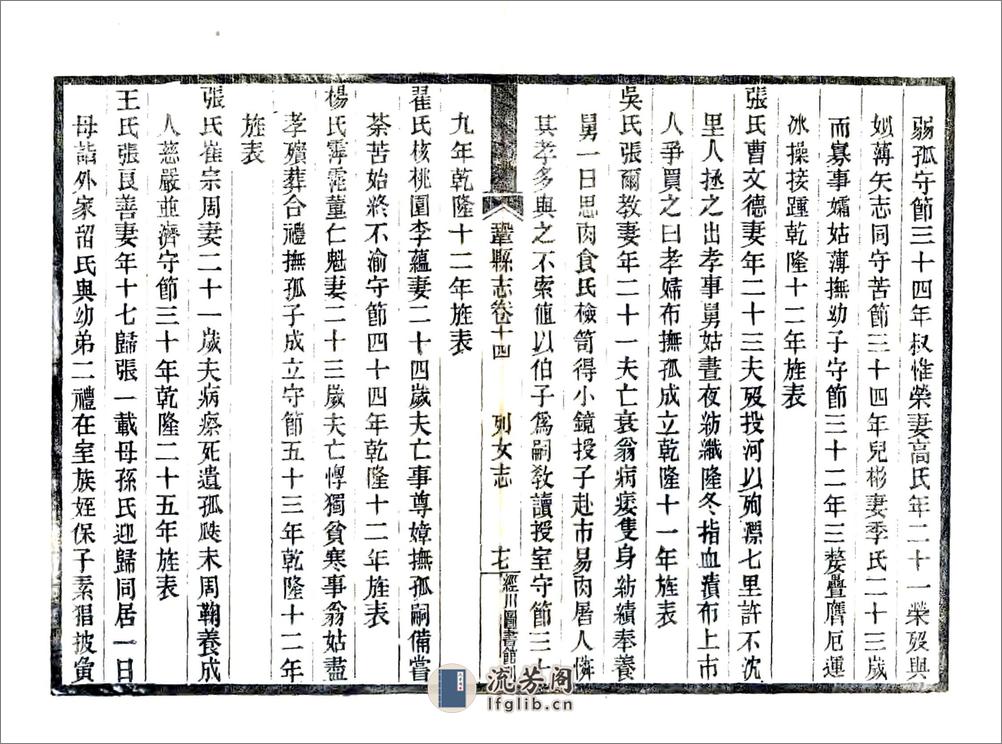 弱孤守節三十四年叔惟榮妻高氏年二十一榮歿與
姒薄矢志同守苦節三十四年兒彬妻季氏二十三歲
而寡事孀姑薄撫幼子守節三十二年三嫠疊膺厄運
冰操接踵乾隆十二年旌表
張氏曹文德妻年二十三夫歿投河以殉漂七里許不沈
里人拯之出孝事舅姑晝夜紡織隆冬指血漬布上市
人爭買之曰孝婦布撫孤成立乾隆十一年旌表
吳氏張爾教妻年二十一夫亡衰翁病痿隻身紡績奉養
舅一日思肉食氏檢笥得小鏡授子赴市易肉屠人憐
其孝多與之不索值以伯子爲嗣敎讀授室守節三十
鞏縣志卷十四 列女志 十七 經川圖書館刊
九年乾隆十二年旌表
翟氏核桃園李蘊妻二十四歲夫亡事尊嫜撫孤嗣備嘗
荼苦始終不渝守節四十四年乾隆十二年旌表
楊氏霏霓董仁魁妻二十三歲夫亡惸獨貧寒事翁姑盡
孝殯葬合禮撫孤子成立守節五十三年乾隆十二年
旌表
張氏崔宗周妻二十一歲夫病瘵死遺孤晬未周鞠養成
人慈嚴並濟守節三十年乾隆二十五年旌表
王氏張良善妻年十七歸張一載母孫氏迎歸同居一日
母詣外家留氏與幼弟二禮在室族姪保子素猖披夤
流芳阁
lfglib.cn